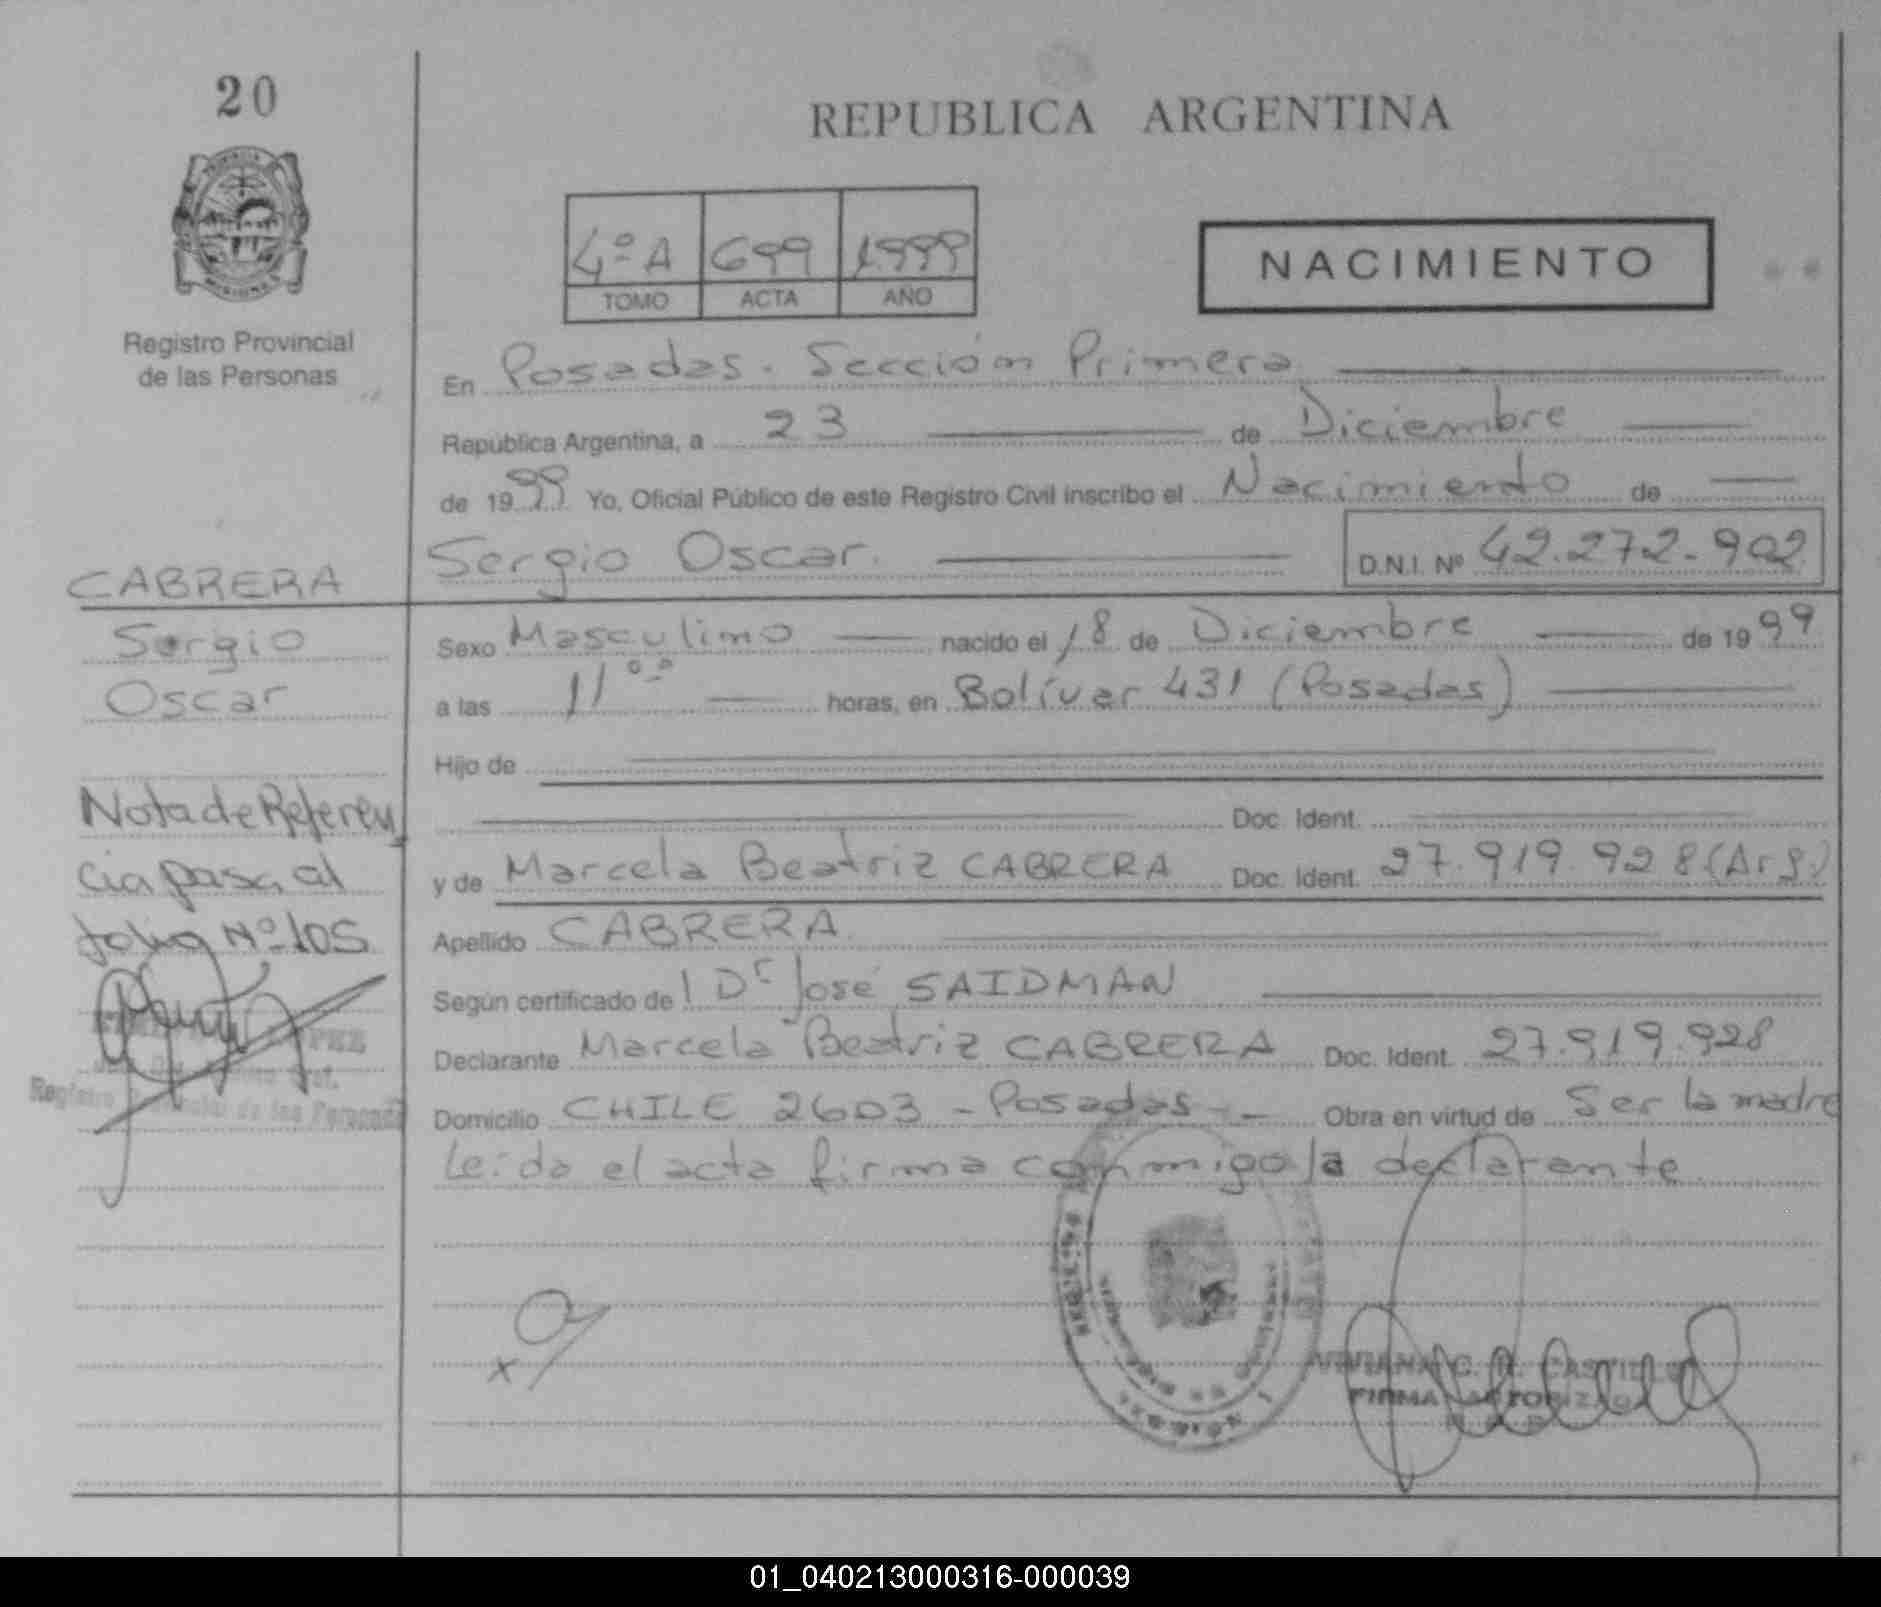 20
REPUBLICA ARGENTINA
4º A 699 1999
TOMO ACTA AÑO
NACIMIENTO
Registro Provincial
de las Personas
En Posadas. Sección Primera
República Argentina, a 23 de Diciembre
de 1999 Yo, Oficial Público de este Registro Civil inscribo el Nacimiento de
Sergio Oscar. D.N.I. Nº 42.272.902
CABRERA
Sergio
Oscar
Sexo Masculino nacido el 18 de Diciembre de 1999
a las 11ºº horas, en Bolívar 431 (Posadas)
Hijo de
Doc. Ident.
y de Marcela Beatriz CABRERA Doc. Ident. 27.919.928 (Arg.)
Apellido CABRERA
Según certificado de Dr José SAIDMAN
Declarante Marcela Beatriz CABRERA Doc. Ident. 27.919.928
Domicilio CHILE 2603 - Posadas - Obra en virtud de Ser la madre
Leída el acta firma conmigo la declarante
Nota de Referen
cia pasa al
folio Nº 105
Registro Provincial de las Personas
x
VIVIANA C. R. CASTILLO
FIRMA AUTORIZADA
01_040213000316-000039